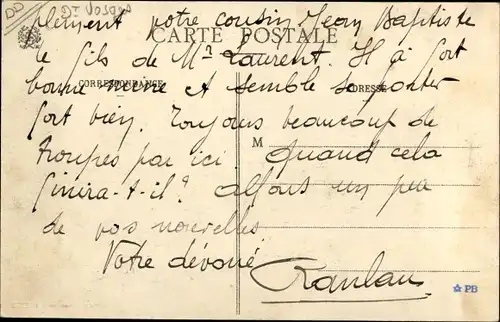 DD Dt VOSGES
plement votre cousin Jean Baptiste
CARTE POSTALE
le fils de Mr Laurent. Il a fort
CORRESPONDANCE ADRESSE
bonne mine et semble se porter
fort bien. Toujours beaucoup de
M
troupes par ici Quand cela
finira-t-il? allons un peu
de vos nouvelles
Votre dévoué
PB